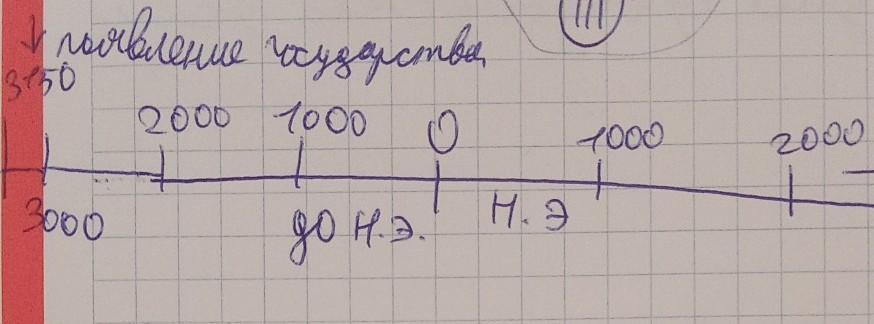 III
↓ появление государства
3150
2000 1000 0 1000 2000
3000 до н.э. Н.Э